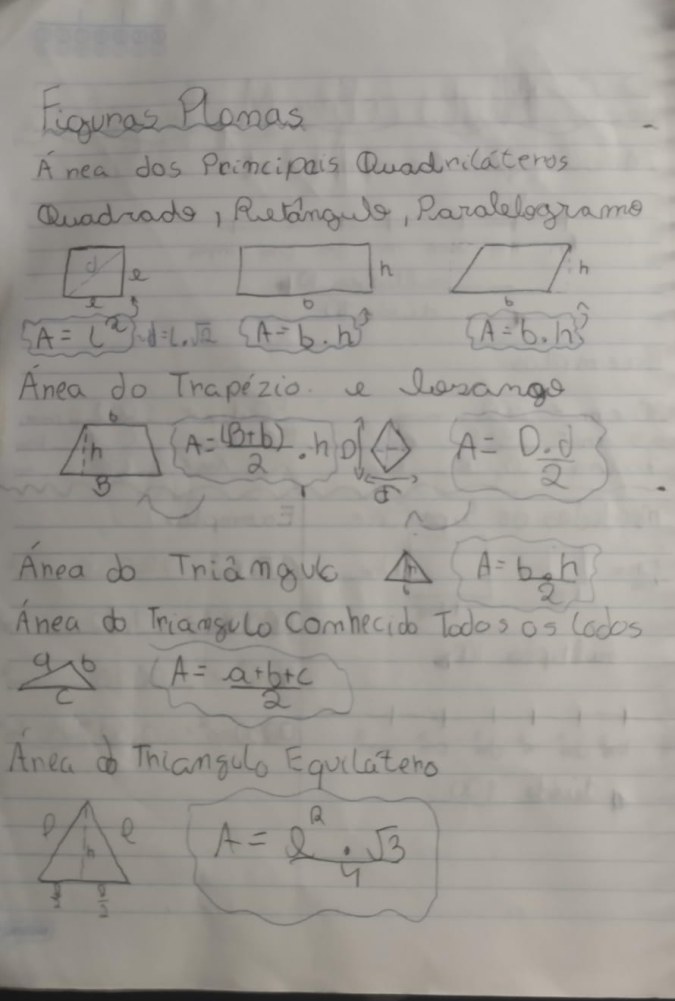 Figuras Planas
Área dos Principais Quadriláteros
Quadrado, Retângulo, Paralelogramo
d l h h
l b b
A = L² d=L.√2 A=b.h A=b.h
Área do Trapézio e losango
b
h A=(B+b)/2 . h D A= D.d/2
B d
Área do Triângulo h A= b.h/2
Área do Triangulo Conhecido Todos os Lados
a b A= a+b+c/2
c
Área do Triangulo Equilátero
l l A = l² . √3/4
h
l/2 l/2